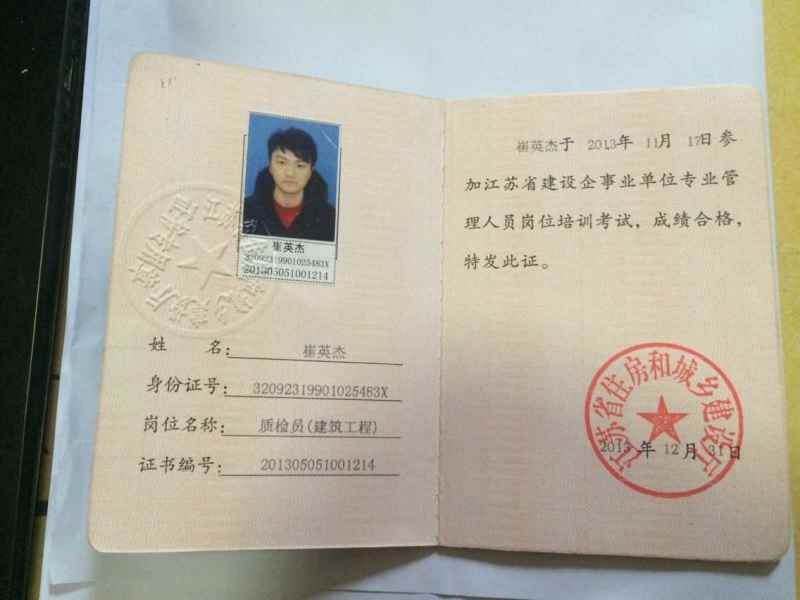 崔英杰
32092319901025483X
201305051001214
姓 名： 崔英杰
身份证号： 32092319901025483X
岗位名称： 质检员(建筑工程)
证书编号： 201305051001214
崔英杰于 2013年 11月 17日 参
加江苏省建设企事业单位专业管
理人员岗位培训考试，成绩合格，
特发此证。
江苏省住房和城乡建设厅
2013 年 12 月 31 日